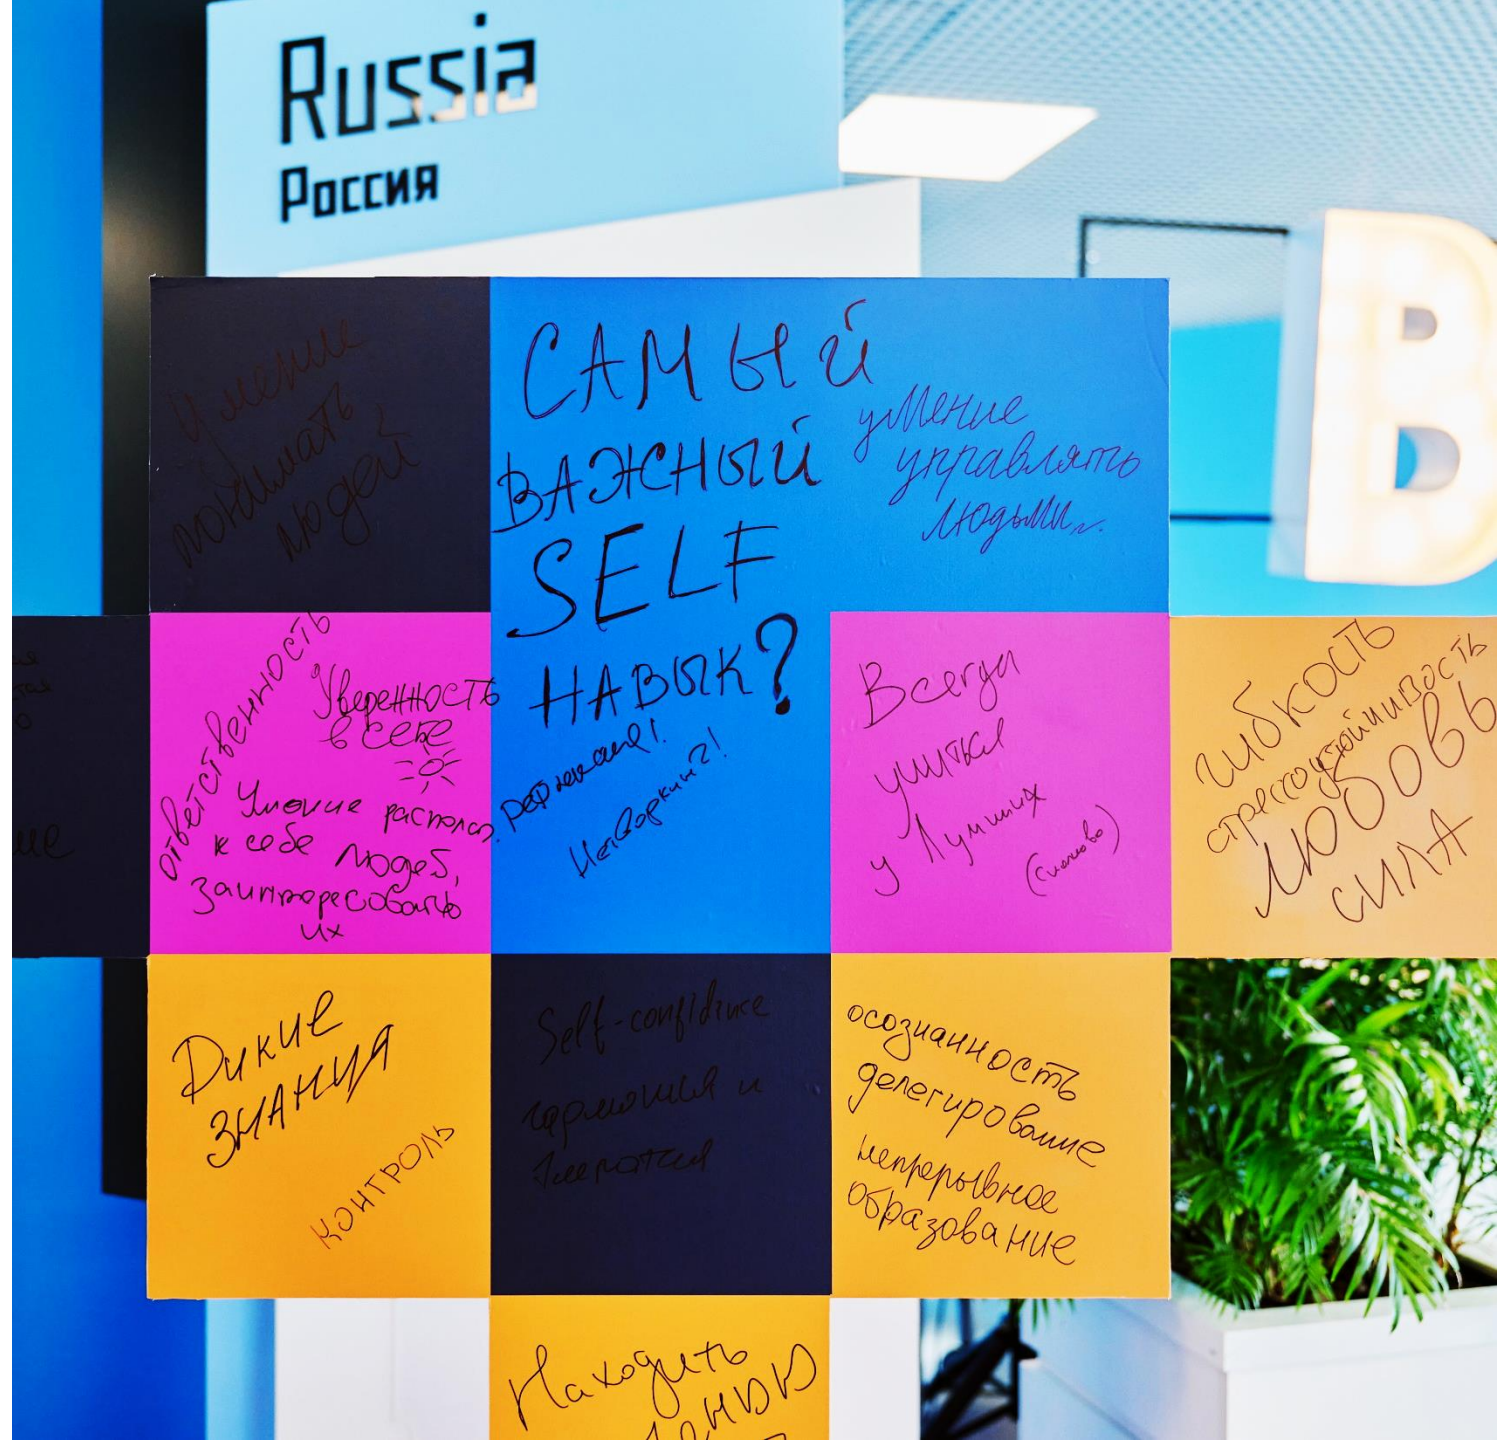 Russia
Россия
B
Умение
понимать
людей
САМЫЙ
ВАЖНЫЙ
SELF
НАВЫК?
умение
управлять
людьми
рефлексия!
Нетворкинг!
ответственность
Уверенность
в себе
Умение распол.
к себе людей,
заинтересовать
их
Всегда
учиться
у Лучших
(Сколково)
гибкость
стрессоустойчивость
любовь
СИЛА
Дикие
ЗНАНИЯ
контроль
Self-confidince
гармония и
осознанность
делегирование
непрерывное
образование
Находить